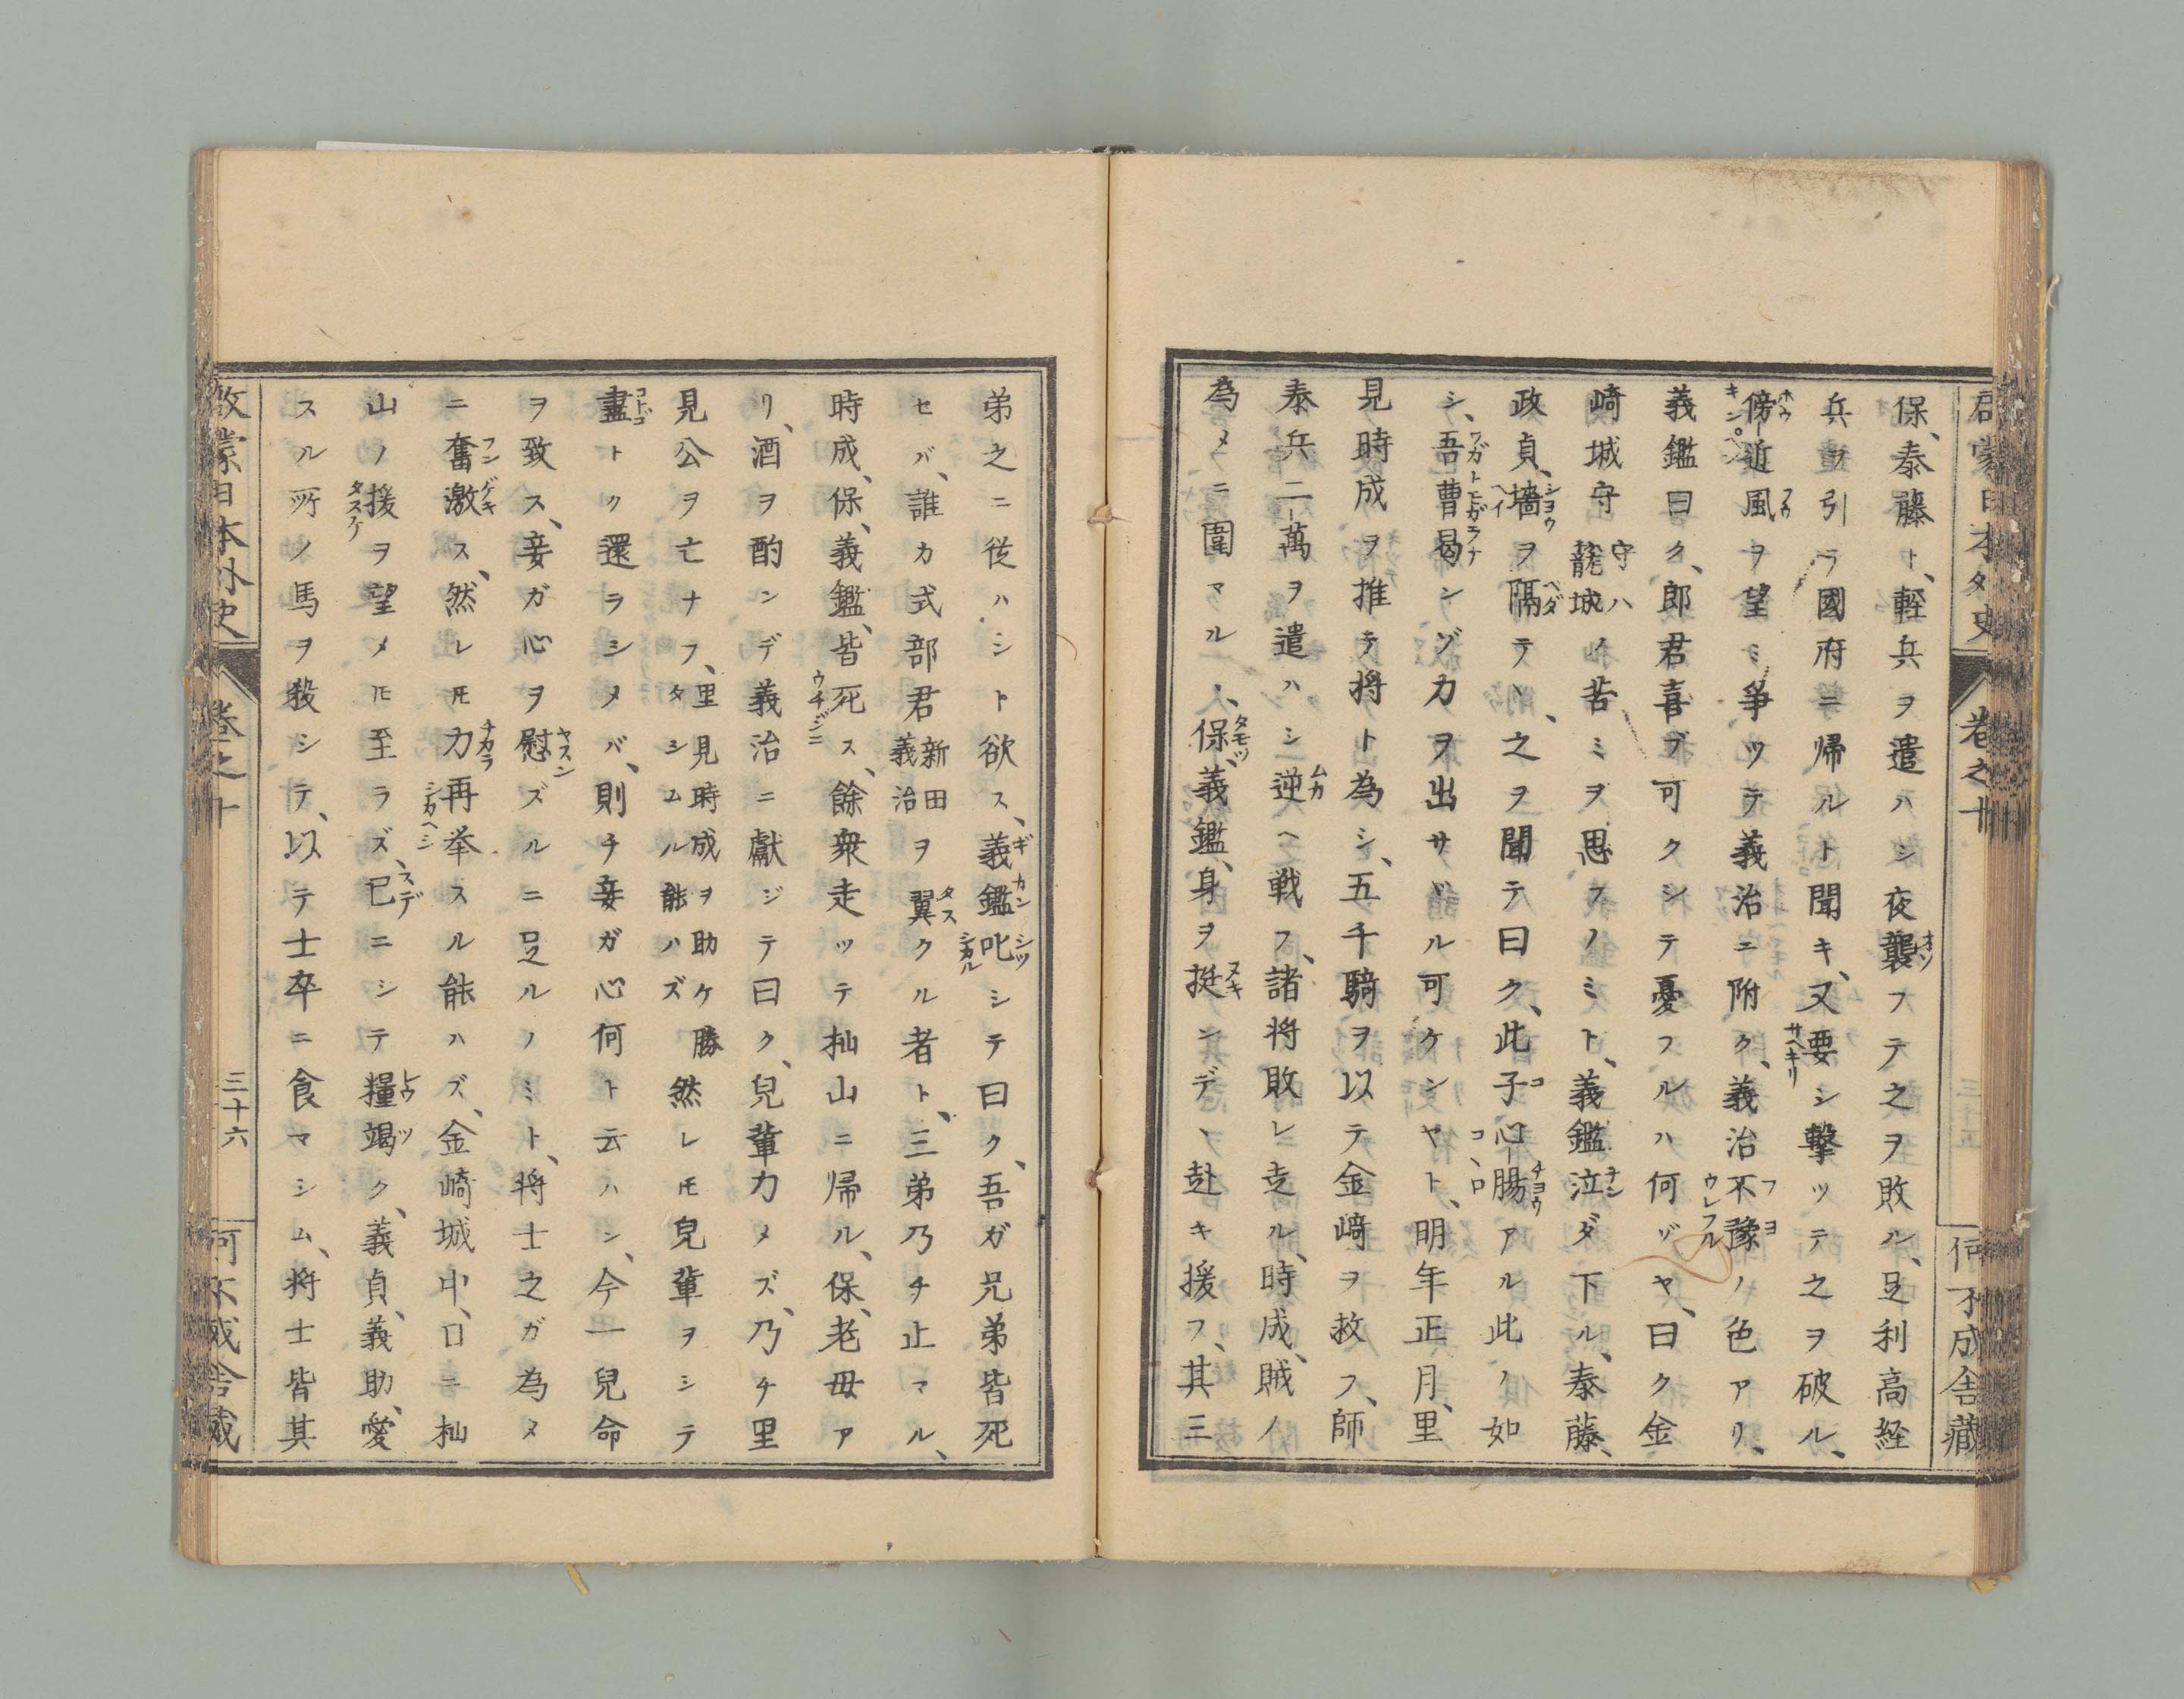 保、泰藤ト、軽兵ヲ遣ハシ夜襲フテ之ヲ敗ル、足利高経
兵ヲ引ラ國府ニ帰ルト聞キ、又要シ撃ツテ之ヲ破ル、
傍近風ヲ望ミ爭ツテ義治ニ附ク、義治不豫ノ色アリ、
義鑑曰ク、郎君喜ブ可クシテ憂フルハ何ゾヤ、曰ク金
崎城守守ハ籠城ノ苦ミヲ思フノミト、義鑑泣ダ下ル、泰藤、
政貞、墻ヲ隔テヽ、之ヲ聞テ曰ク、此子心腸アル此ノ如
シ、吾曹曷ンゾ力ヲ出サヾル可ケンヤト、明年正月、里
見時成ヲ推テ将ト為シ、五千騎ヲ以テ金﨑ヲ救フ、師
泰兵二萬ヲ遣ハシ逆ヘ戦フ、諸将敗レ走ル、時成、賊ノ
為メニ圍マル、人、保、義鑑、身ヲ挺ンデヽ赴キ援フ、其三
弟之ニ従ハント欲ス、義鑑叱シテ曰ク、吾ガ兄弟皆死
セバ、誰カ式部君新田義治ヲ翼クル者ト、三弟乃チ止マル、
時成、保、義鑑、皆死ス、餘衆走ッテ杣山ニ帰ル、保、老母ア
リ、酒ヲ酌ンデ義治ニ獻ジテ曰ク、兒輩力メズ、乃チ里
見公ヲ亡ナフ、里見時成ヲ助ケ勝タシムル能ハズ然レ𪜈兒輩ヲシテ
盡トク還ラシメバ、則チ妾ガ心何ト云ハン、今一兒命
ヲ致ス、妾ガ心ヲ慰ズルニ足ルノミト、将士之ガ為メ
ニ奮激ス、然レ𪜈力再挙スル能ハズ、金崎城中、口ニ杣
山ノ援ヲ望メ𪜈至ラズ、已ニシテ糧竭ク、義貞、義助、愛
スル所ノ馬ヲ殺シテ、以テ士卒ニ食マシム、将士皆其
卷之十
三十六
何不成舎蔵